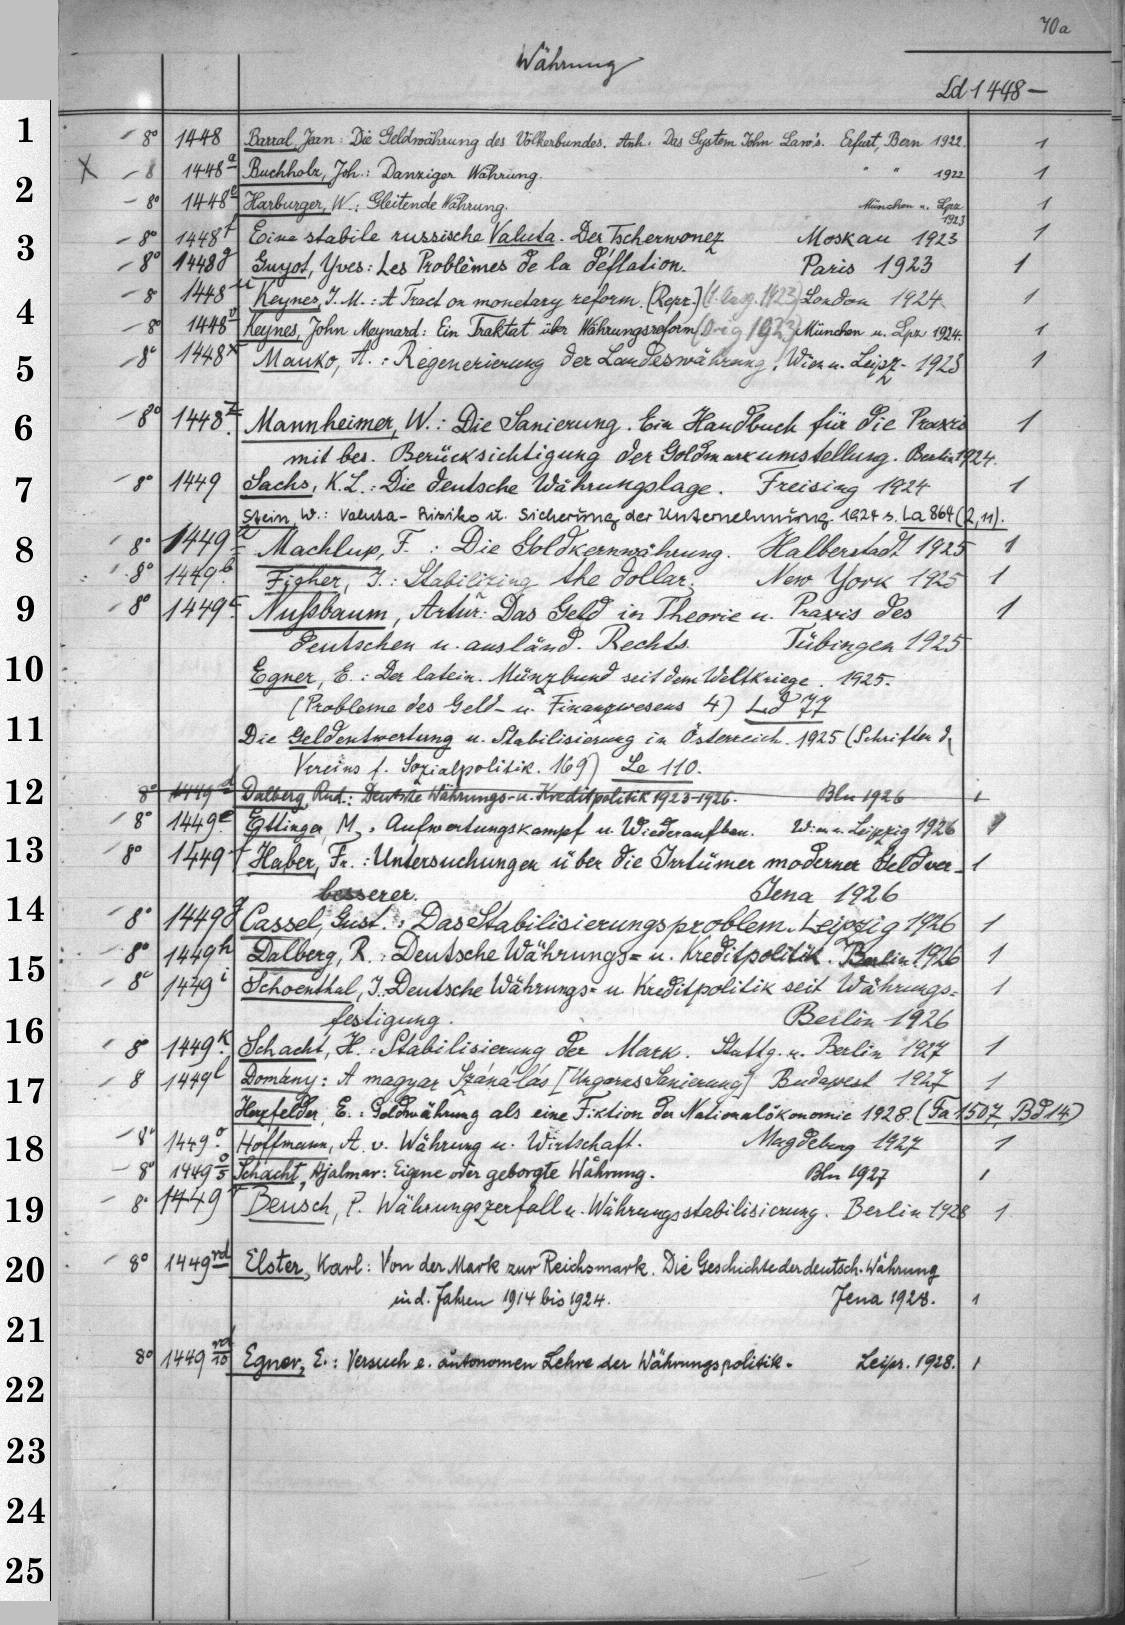 70a
Währung
Ld 1448 —
1
– 8° 1448 Barral, Jean: Die Geldwährung des Völkerbundes. Anh. Das System John Law's. Erfurt, Bern 1922. 1
X – 8 1448a Buchholz, Joh.: Danziger Währung. " " 1922 1
2
– 8° 1448e Harburger, W.: Gleitende Währung. München u. Lpz 1923 1
3
– 8° 1448f Eine stabile russische Valuta. Der Tscherwonez Moskau 1923 1
– 8° 1448g Guyot, Yves: Les Problèmes de la déflation. Paris 1923 1
– 8 1448u Keynes, J. M.: A Tract on monetary reform. (Repr.) (1. Ausg. 1923) London 1924 1
4
– 8° 1448v Keynes, John Meynard: Ein Traktat über Währungsreform (Orig 1923) München u. Lpz 1924. 1
– 8° 1448x Manko, A.: Regenerierung der Landeswährung! Wien u. Leipz- 1923 1
5
6
– 8° 1448z. Mannheimer, W.: Die Sanierung. Ein Handbuch für die Praxis 1
mit bes. Berücksichtigung der Goldmarkumstellung. Berlin 1924.
7
– 8° 1449 Sachs, K. L.: Die deutsche Währungslage. Freising 1924 1
Stein, W.: Valuta-Risiko u. Sicherung der Unternehmung. 1924 s. La 864 (2,11).
8
– 8° 1449a Machlup, F.: Die Goldkernwährung. Halberstadt 1925 1
– 8° 1449b. Fisher, I.: Stabilizing the dollar. New York 1925 1
9
– 8° 1449c Nußbaum, Artur: Das Geld in Theorie u. Praxis des 1
deutschen u. ausländ. Rechts. Tübingen 1925
10
Egner, E.: Der latein. Münzbund seit dem Weltkriege. 1925.
(Probleme des Geld- u. Finanzwesens 4) Ld 77
11
Die Geldentwertung u. Stabilisierung in Österreich. 1925 (Schriften d.
Vereins f. Sozialpolitik. 169) Le 110.
12
8° 1449d Dalberg, Rud.: Deutsche Währungs- u. Kreditpolitik 1923-1926. Bln 1926 1
– 8° 1449e. Ettinger M., Aufwertungskampf u. Wiederaufbau. Wien u. Leipzig 1926
13
– 8° 1449f Haber, Fr.: Untersuchungen über die Irrtümer moderner Geldver- 1
besserer. Jena 1926
14
– 8° 1449g Cassel, Gust.: Das Stabilisierungsproblem. Leipzig 1926 1
– 8° 1449h Dalberg, R.: Deutsche Währungs= u. Kreditpolitik. Berlin 1926 1
15
– 8° 1449i Schoenthal, J.: Deutsche Währungs= u. Kreditpolitik seit Währungs= 1
festigung. Berlin 1926
16
– 8° 1449k. Schacht, H.: Stabilisierung der Mark. Stuttg. u. Berlin 1927 1
17
– 8 1449l Domány: A magyar Szánálás [Ungarns Sanierung] Budapest 1927 1
Herzfelder, E.: Goldwährung als eine Fiktion der Nationalökonomie 1928. (Fa 1507, Bd 14)
18
– 8° 1449o Hoffmann, A. v. Währung u. Wirtschaft. Magdeburg 1927 1
– 8° 1449o/5 Schacht, Hjalmar: Eigene oder geborgte Währung. Bln 1927 1
19
– 8° 1449r Beusch, P. Währungszerfall u. Währungsstabilisierung. Berlin 1928 1
20
– 8° 1449rd Elster, Karl: Von der Mark zur Reichsmark. Die Geschichte der deutsch. Währung
in d. Jahren 1914 bis 1924. Jena 1928. 1
21
8° 1449rd/10 Egner, E.: Versuch e. autonomen Lehre der Währungspolitik. Leipz. 1928. 1
22
23
24
25